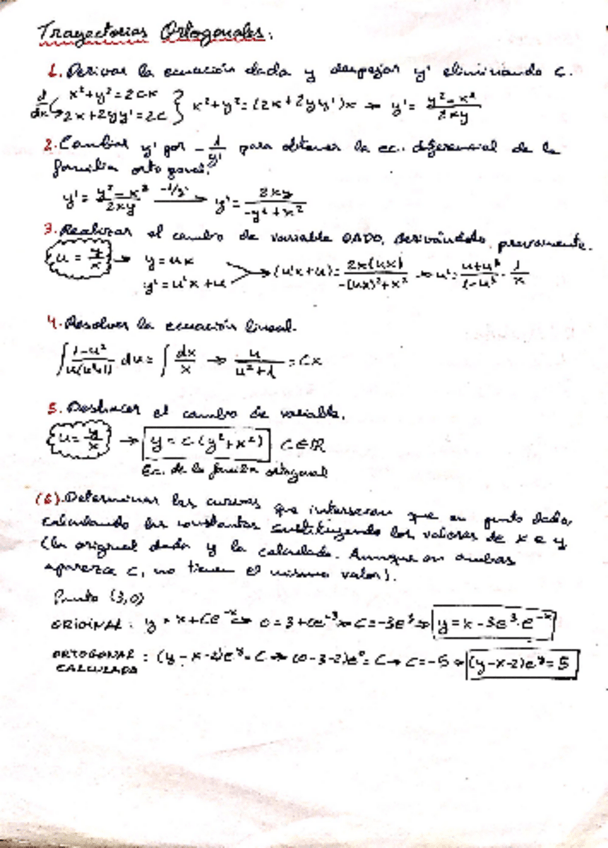 Trayectorias Ortogonales:
1. Derivar la ecuación dada y despejar y' eliminando C.
d/dx x²+y²=2cx
2x+2yy'=2c } x²+y²=(2x+2yy')x → y'= (y²-x²)/(2xy)
2. Cambiar y' por -1/y' para obtener la ec. diferencial de la
familia ortogonal.
y'= (y²-x²)/(2xy) -1/y' → y'= 2xy/(-y²+x²)
3. Realizar el cambio de variable DADO, derivándolo previamente.
u = y/x → y=ux
y'=u'x+u → (u'x+u)= 2x(ux)/(-(ux)²+x²) → u'= (u+u³)/(1-u²) · 1/x
4. Resolver la ecuación lineal.
∫ (1-u²)/(u(u²+1)) du = ∫ dx/x → u/(u²+1) = Cx
5. Deshacer el cambio de variable.
u = y/x → y=C·(y²+x²) C∈ℝ
Ec. de la familia ortogonal
(6). Determinar las curvas que intersecan en punto dado,
calculando las constantes sustituyendo los valores de x e y
(la original dada y la calculada. Aunque en ambas
aparezca C, no tienen el mismo valor).
Punto (3,0)
ORIGINAL: y = x+Ce⁻ˣ → 0=3+Ce⁻³ → C=-3e³ → y=x-3e³·e⁻ˣ
ORTOGONAL
CALCULADA : (y-x-2)eʸ=C → (0-3-2)e⁰=C → C=-5 → (y-x-2)eʸ=5